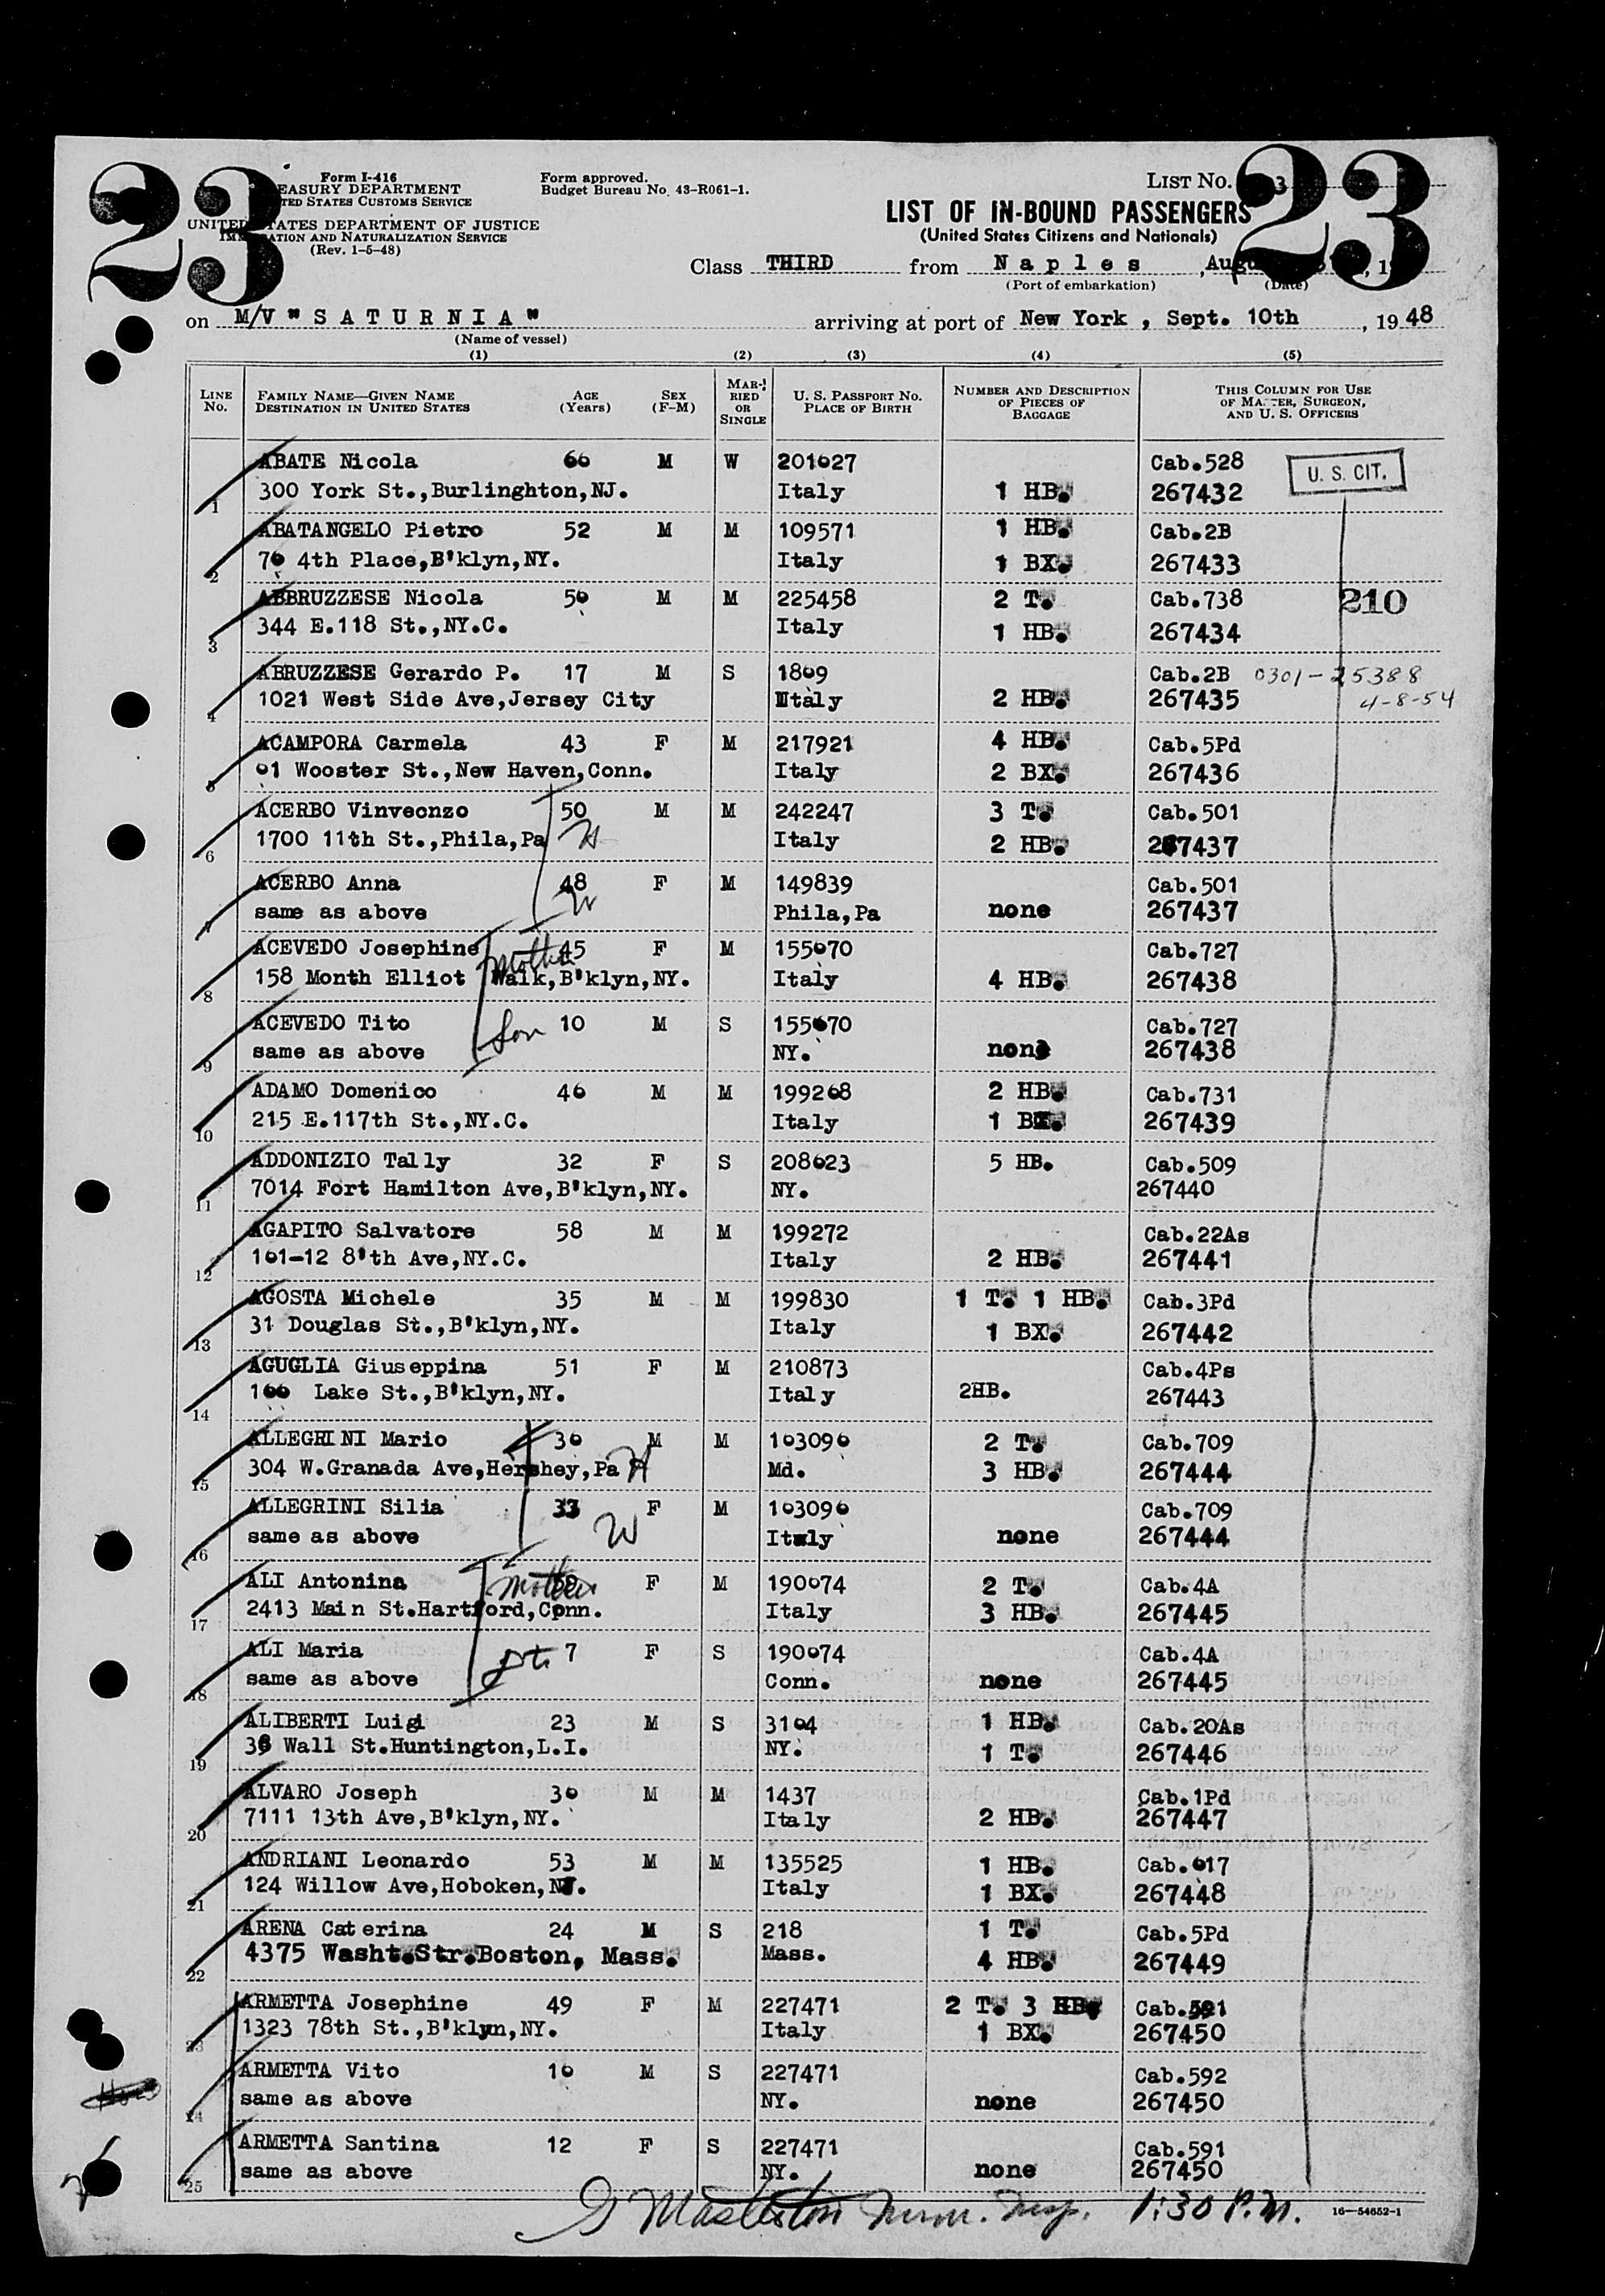 23
23
Form I-416
TREASURY DEPARTMENT
UNITED STATES CUSTOMS SERVICE
UNITED STATES DEPARTMENT OF JUSTICE
IMMIGRATION AND NATURALIZATION SERVICE
(Rev. 1-5-48)
Form approved.
Budget Bureau No. 43-R061-1.
LIST No. 3
LIST OF IN-BOUND PASSENGERS
(United States Citizens and Nationals)
Class THIRD from Naples, Augu , 1
(Port of embarkation) (Date)
on M/V "SATURNIA" arriving at port of New York, Sept. 10th, 1948
(Name of vessel)
(1) (2) (3) (4) (5)
LINE No. FAMILY NAME—GIVEN NAME DESTINATION IN UNITED STATES AGE (Years) SEX (F-M) MARRIED OR SINGLE U. S. PASSPORT No. PLACE OF BIRTH NUMBER AND DESCRIPTION OF PIECES OF BAGGAGE THIS COLUMN FOR USE OF MASTER, SURGEON, AND U. S. OFFICERS
ABATE Nicola 66 M W 201627 Cab.528 U. S. CIT.
1 300 York St.,Burlinghton,NJ. Italy 1 HB. 267432
ABATANGELO Pietro 52 M M 109571 1 HB. Cab.2B
2 76 4th Place,B'klyn,NY. Italy 1 BX. 267433
ABBRUZZESE Nicola 56 M M 225458 2 T. Cab.738 210
3 344 E.118 St.,NY.C. Italy 1 HB. 267434
ABRUZZESE Gerardo P. 17 M S 1869 Cab.2B 0301-25388
4 1021 West Side Ave,Jersey City Italy 2 HB. 267435 4-8-54
ACAMPORA Carmela 43 F M 217921 4 HB. Cab.5Pd
5 61 Wooster St.,New Haven,Conn. Italy 2 BX. 267436
ACERBO Vinveonzo 50 M M 242247 3 T. Cab.501
6 1700 11th St.,Phila,Pa H Italy 2 HB. 267437
ACERBO Anna 48 F M 149839 Cab.501
7 same as above W Phila,Pa none 267437
ACEVEDO Josephine mother 45 F M 155670 Cab.727
8 158 Month Elliot Walk,B'klyn,NY. Italy 4 HB. 267438
ACEVEDO Tito son 10 M S 155670 Cab.727
9 same as above NY. none 267438
ADAMO Domenico 46 M M 199268 2 HB. Cab.731
10 215 E.117th St.,NY.C. Italy 1 BX. 267439
ADDONIZIO Tally 32 F S 208623 5 HB. Cab.509
11 7014 Fort Hamilton Ave,B'klyn,NY. NY. 267440
AGAPITO Salvatore 58 M M 199272 Cab.22As
12 161-12 8'th Ave,NY.C. Italy 2 HB. 267441
AGOSTA Michele 35 M M 199830 1 T. 1 HB. Cab.3Pd
13 31 Douglas St.,B'klyn,NY. Italy 1 BX. 267442
AGUGLIA Giuseppina 51 F M 210873 Cab.4Ps
14 166 Lake St.,B'klyn,NY. Italy 2HB. 267443
ALLEGRINI Mario 36 M M 163096 2 T. Cab.709
15 304 W.Granada Ave,Hershey,Pa H Md. 3 HB. 267444
ALLEGRINI Silia 33 F M 163096 Cab.709
16 same as above W Italy none 267444
ALI Antonina mother F M 190674 2 T. Cab.4A
17 2413 Main St.Hartford,Conn. Italy 3 HB. 267445
ALI Maria 7 F S 190674 Cab.4A
18 same as above Conn. none 267445
ALIBERTI Luigi 23 M S 3164 1 HB. Cab.20As
19 Wall St.Huntington,L.I. NY. 1 T. 267446
ALVARO Joseph 36 M M 1437 Cab.1Pd
20 7111 13th Ave,B'klyn,NY. Italy 2 HB. 267447
ANDRIANI Leonardo 53 M M 135525 1 HB. Cab.617
21 124 Willow Ave,Hoboken,NJ. Italy 1 BX. 267448
ARENA Caterina 24 M S 218 1 T. Cab.5Pd
22 4375 Washt.Str.Boston, Mass. Mass. 4 HB. 267449
ARMETTA Josephine 49 F M 227471 2 T. 3 HB. Cab.591
23 1323 78th St.,B'klyn,NY. Italy 1 BX. 267450
ARMETTA Vito 16 M S 227471 Cab.592
24 same as above NY. none 267450
ARMETTA Santina 12 F S 227471 Cab.591
25 same as above NY. none 267450
G Masterton Imm. Insp. 1:30 P.M. 16—54652-1